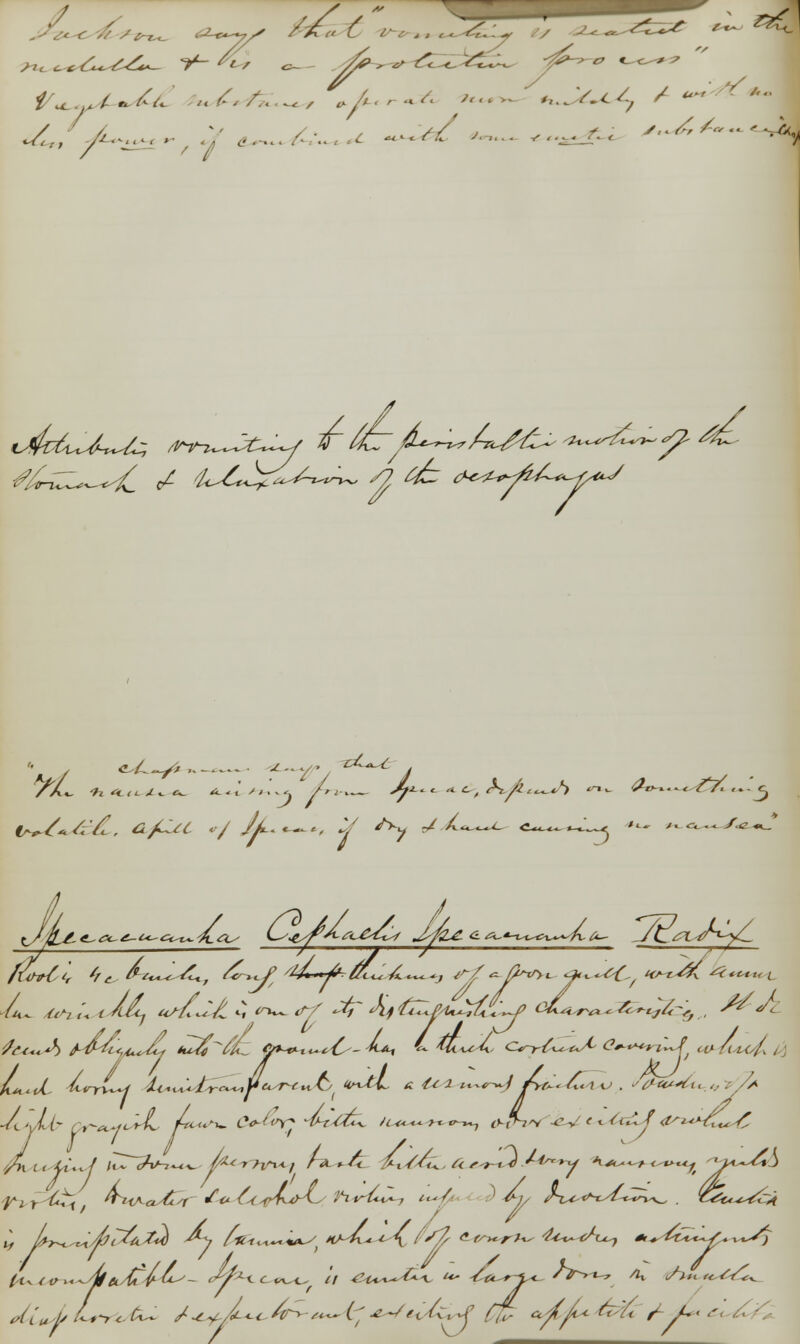 Jackson says that "vomiting is seated in the
medulla & is a protective process"
Vegetable substances operate more mildly & with no
less power, if combined with some emetic substance
Attributes vomiting to the peristaltic motion of the
stomach & relaxation of the oesophagus
chapman says that
"The nausea arising from Ipecac, depends on something
volatile. A pill of Ipecac, if dry & hard causing no nausea"
Ipecacuanha Cephaelis Ipecacuanha Radix
Root is long, thickness of a goose quill, with annu
lar wrinkles, which is one of its distinguishing characteristics. It de
scends obliquely into the ground - has a thick cortical covering, which is
hard horny semitransparent, with a resinous fracture. Powder is of a
light grayish fawn color, bitter nauseous odor exciting violent
sneezing in some persons, taste bitter acrid & very nauseous, yields
virtues, to water & alcohol, virtues by decoction. Emetia
is precipitated by tannin, which of course renders astringents
incompatible - Ipecac, is emetic in large doses, in smaller
diaphoretic & expectorant, exciting the appetite & facilita